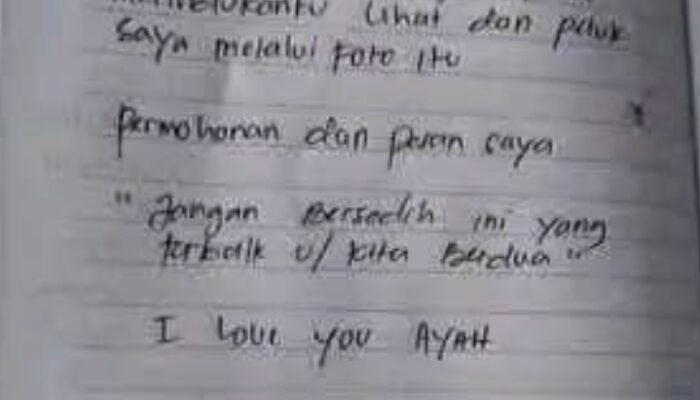 lihat dan peluk
saya melalui foto itu
permohonan dan pesan saya
"Jangan Bersedih ini yang
terbaik u/ kita Berdua"
I LOVE YOU AYAH